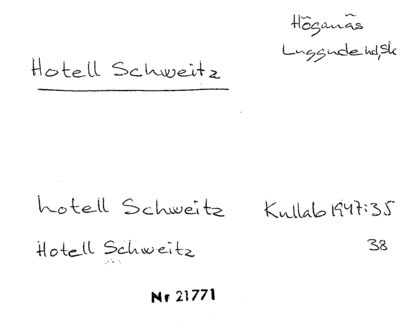 Höganäs
Luggude hd, Sk
Hotell Schweitz
hotell Schweitz Kullab 1947:35
Hotell Schweitz 38
Nr 21771